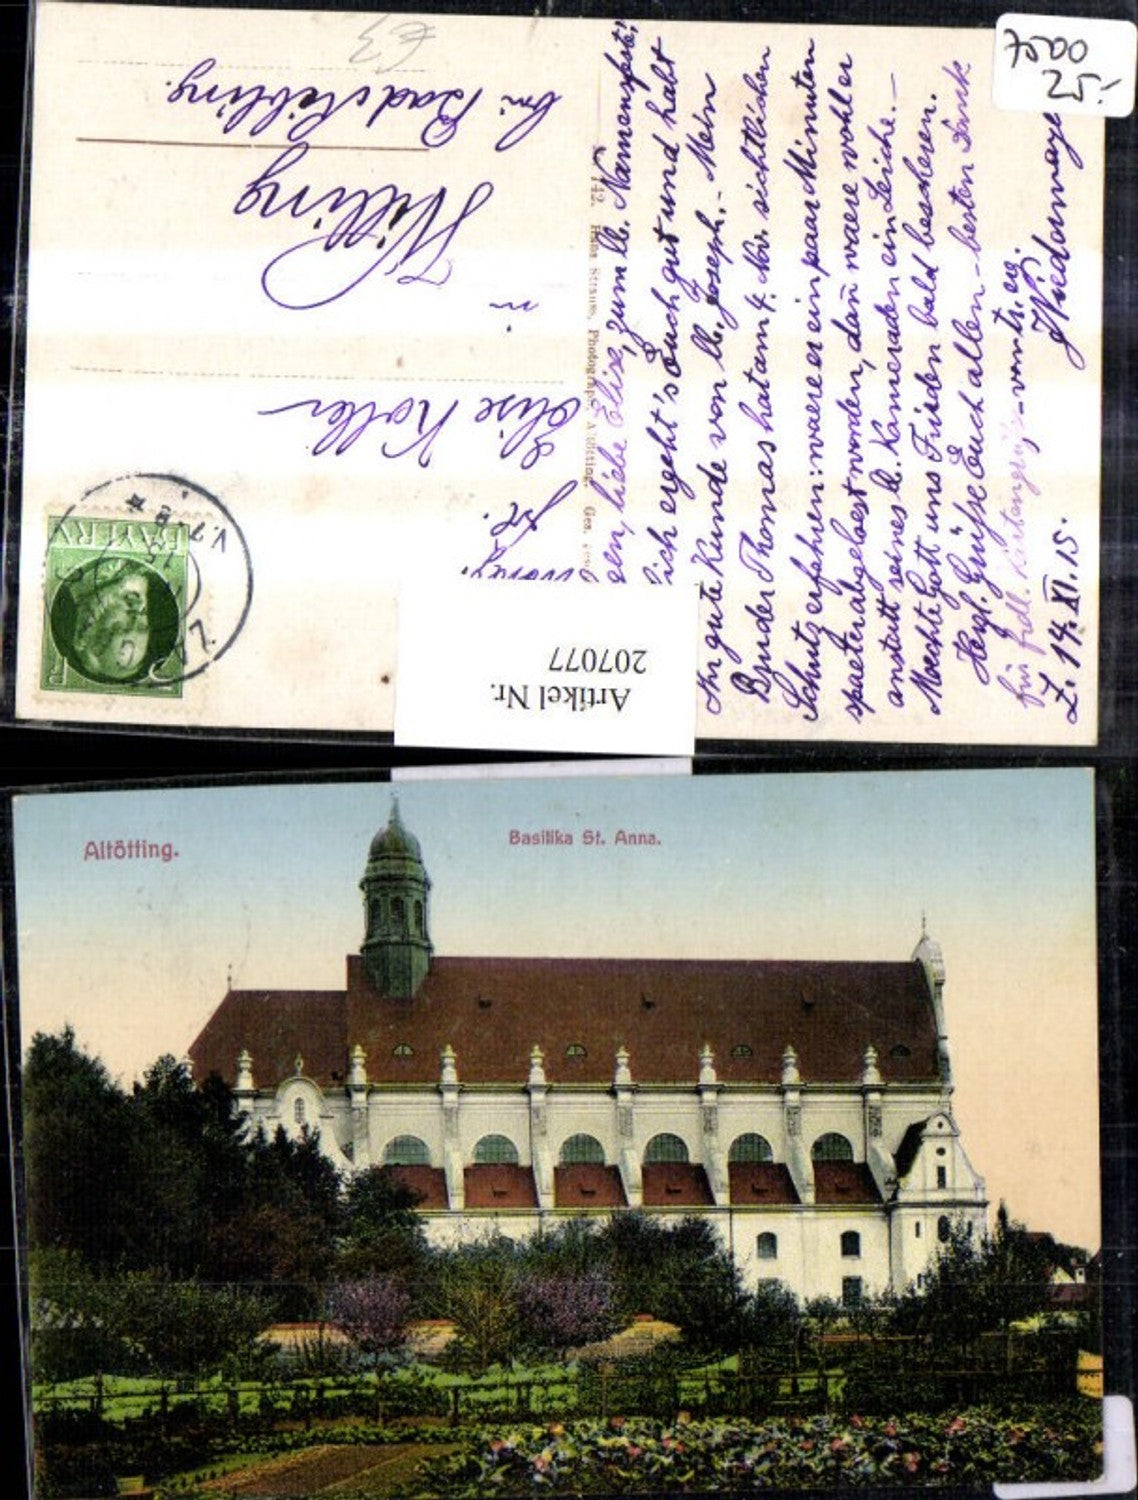 7000
25.-
€3
Frl.
Elise Koller
in
Willing
bei Bad Aibling.
BAYERN
142. Hans Strauss, Photograph, Altötting. Ges. gesch.
Artikel Nr.
207077
sen, liebe Elise, zum lb. Namensfeste!
ich ergeht's Euch gut und habt
Ihr gute Kunde von lb. Joseph. - Mein
Bruder Thomas hat am 4. Nov. sichtlichen
Schutz erfahren: waere er ein paar Minuten
spaeter abgeloest worden, dan̄ waere wohl er
anstatt seines lb. Kameraden eine Leiche. -
Moechte Gott uns Frieden bald bescheren.
Herzl. Grüsse Euch allen - besten Dank
für frdl. Kartengrüße
Z. 14. XI. 15.
Niedermaye
Altötting.
Basilika St. Anna.